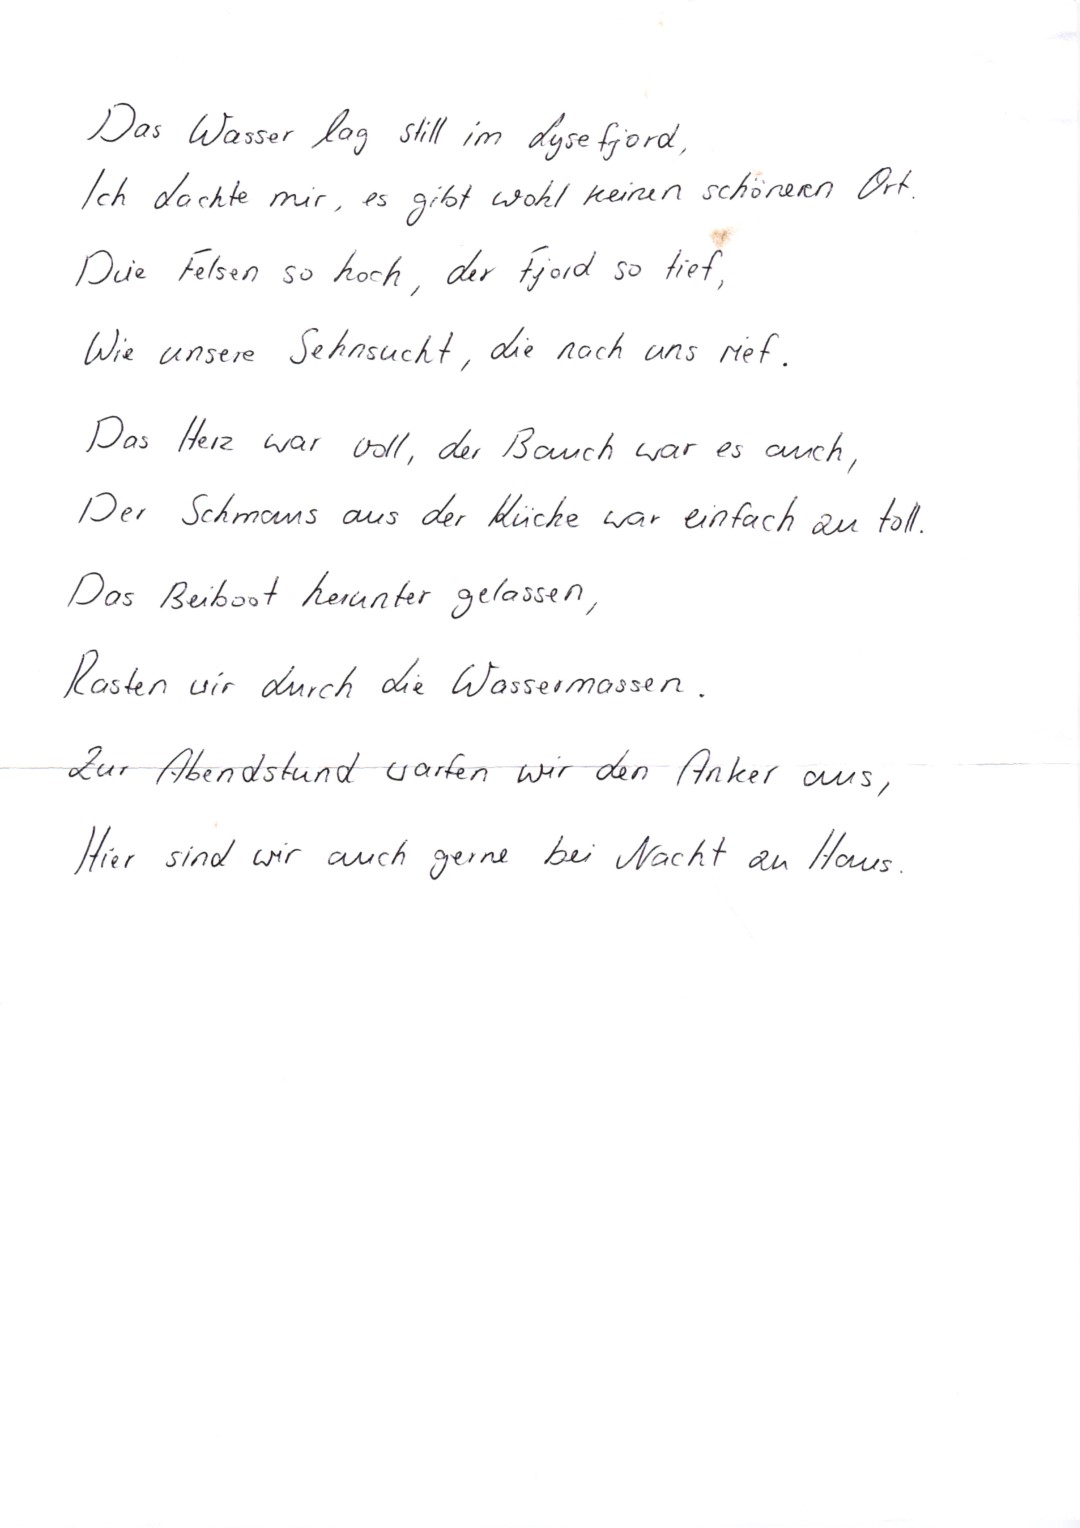 Das Wasser lag still im Lysefjord,
Ich dachte mir, es gibt wohl keinen schöneren Ort.
Die Felsen so hoch, der Fjord so tief,
Wie unsere Sehnsucht, die nach uns rief.
Das Herz war voll, der Bauch war es auch,
Der Schmaus aus der Küche war einfach zu toll.
Das Beiboot herunter gelassen,
Rasten wir durch die Wassermassen.
Zur Abendstund warfen wir den Anker aus,
Hier sind wir auch gerne bei Nacht zu Haus.